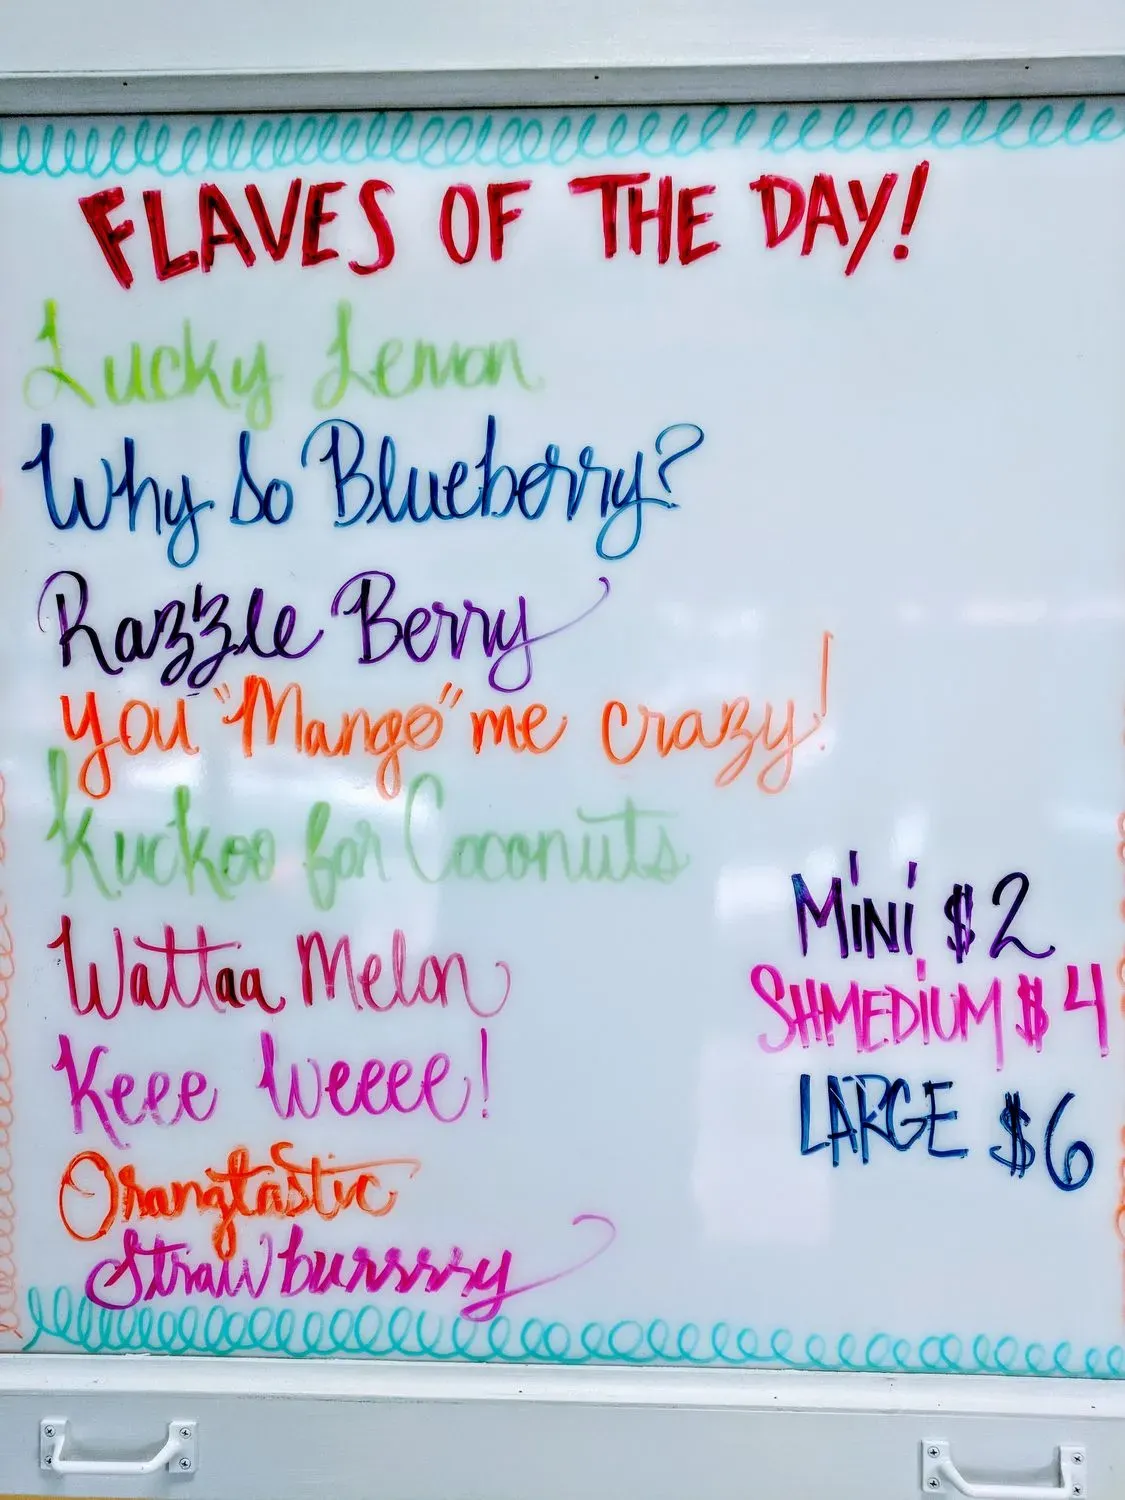 FLAVES OF THE DAY!
Lucky Lemon
Why So Blueberry?
Razzle Berry
you "Mango" me crazy!
Kuckoo for Coconuts
Wattaa Melon
Keee Weeee!
Orangtastic
Strawburssssy
MiNi $2
SHMEDiUM $4
LARGE $6